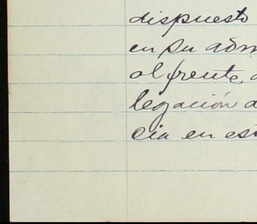 dispuesto
en su adm
al frente, d
legación d
cia en est